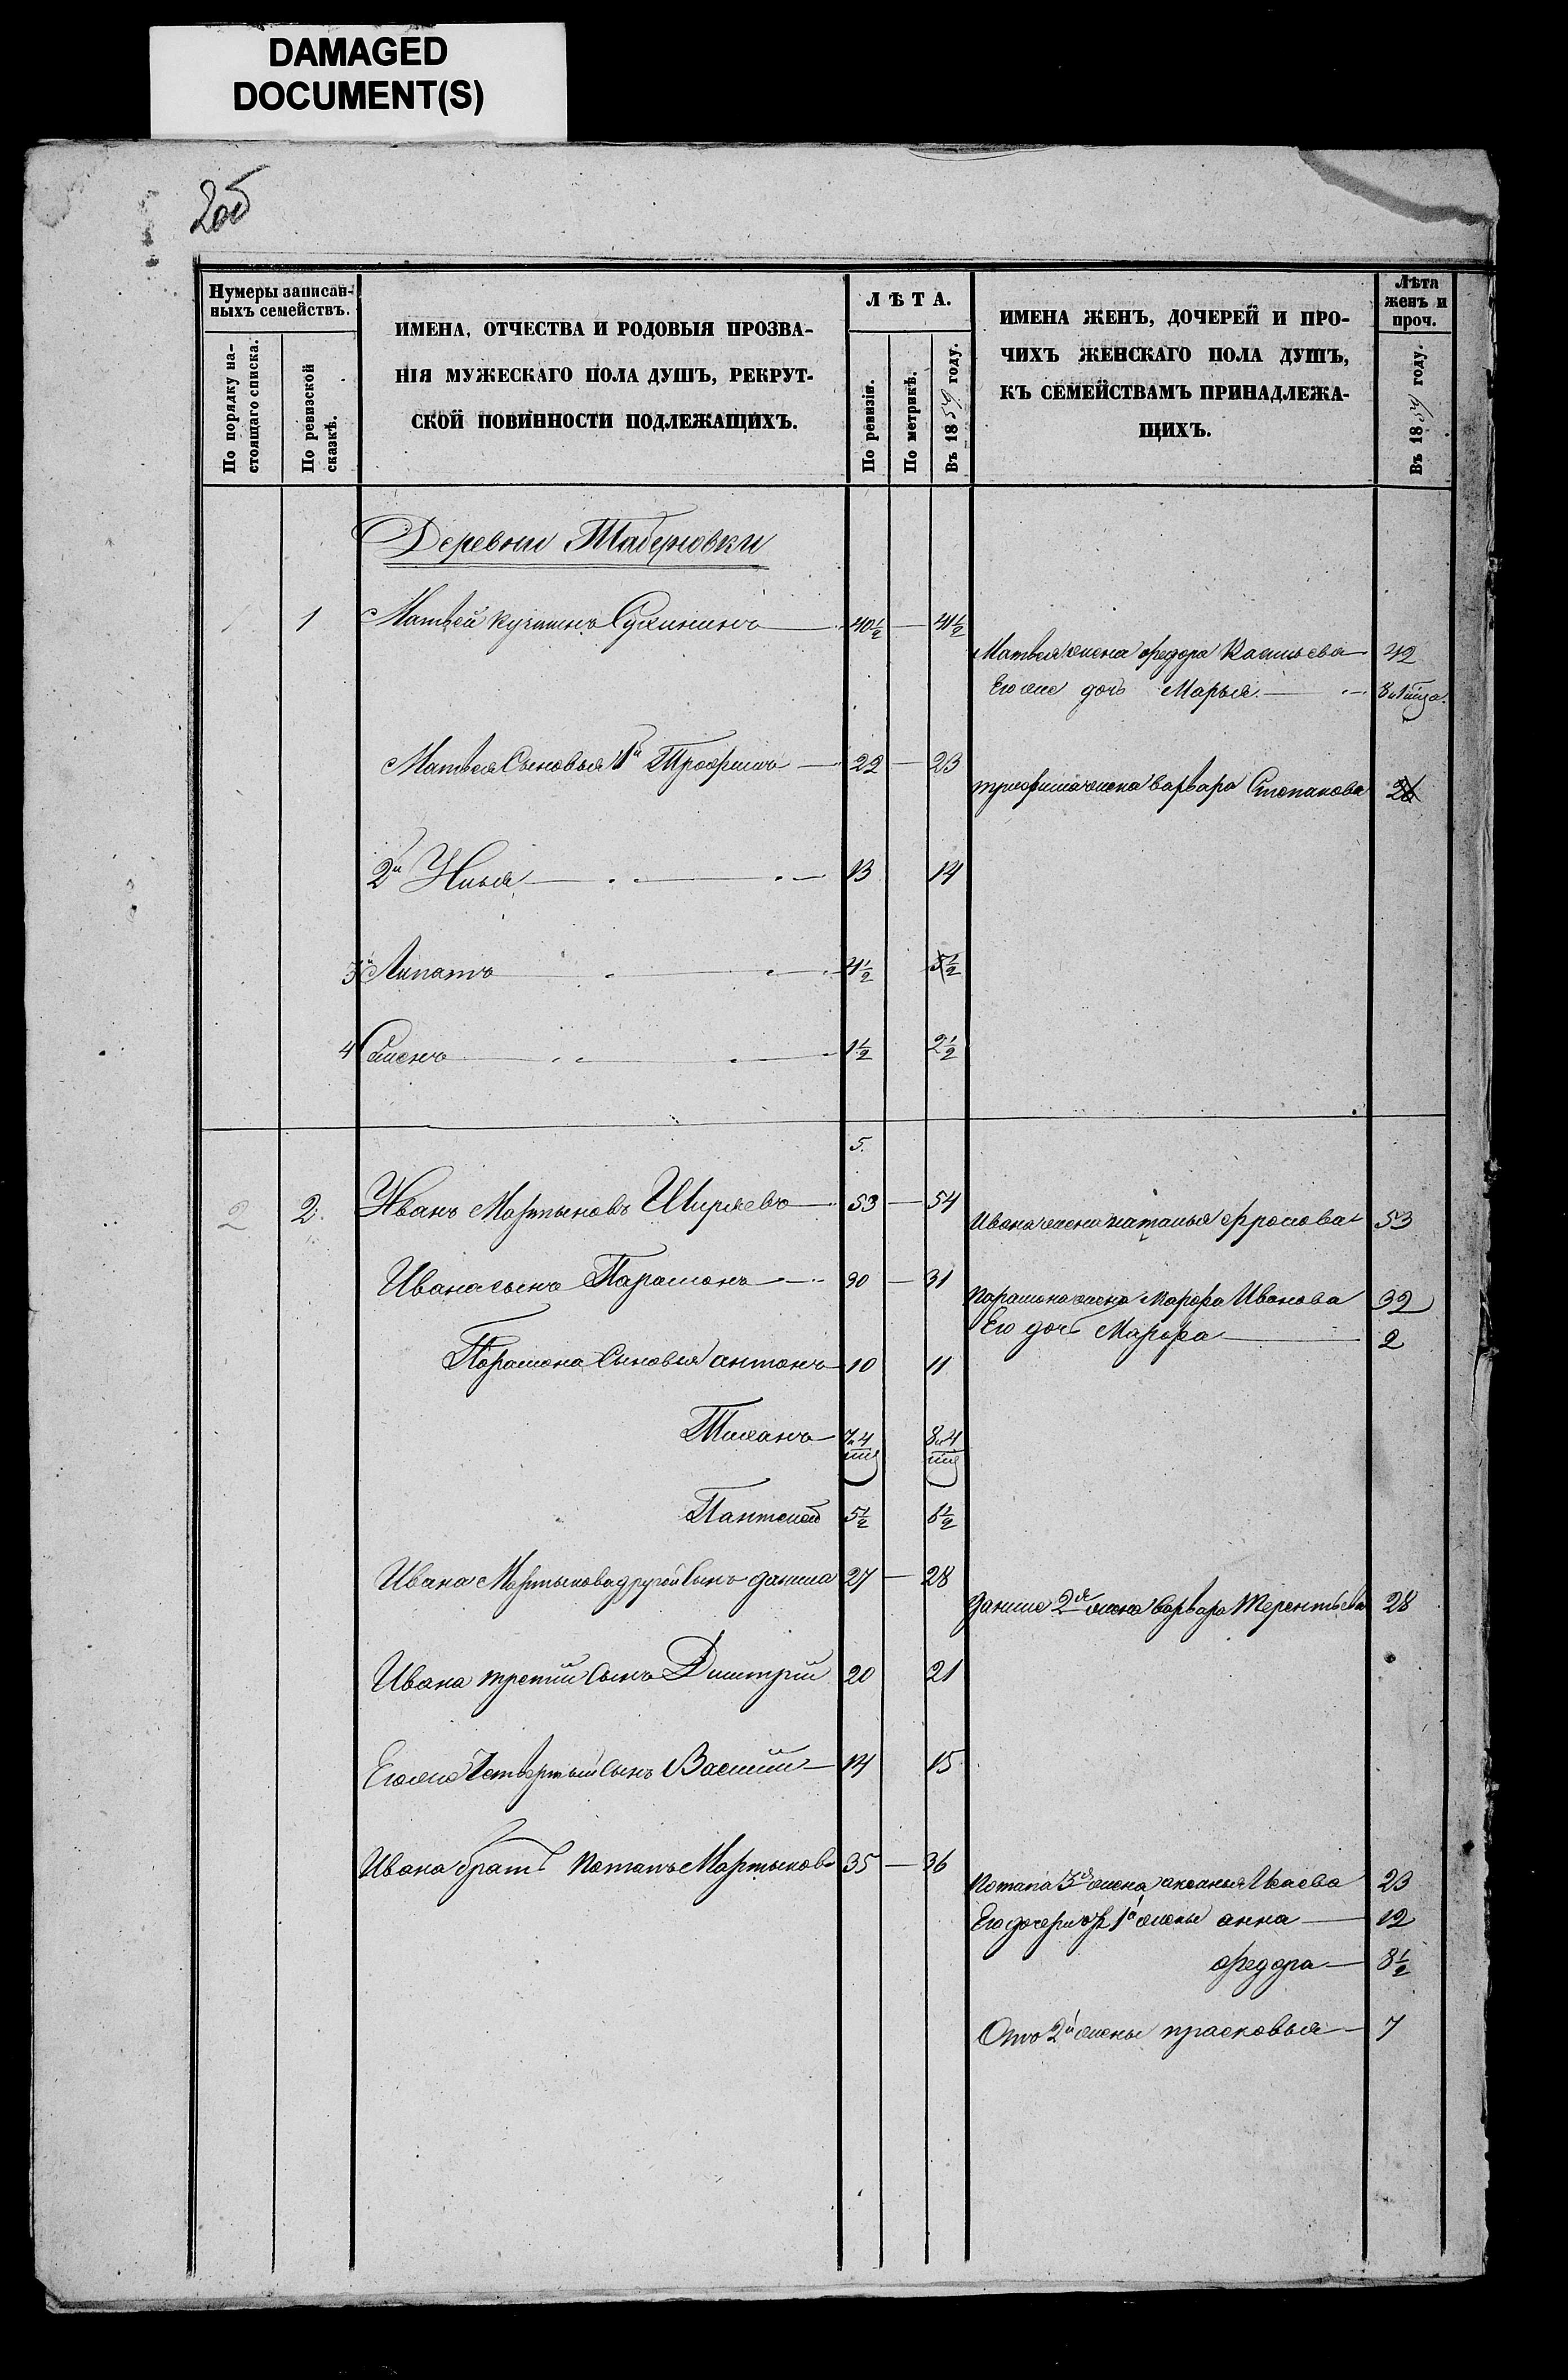 DAMAGED
DOCUMENT(S)
2об
Нумеры записан-
ныхъ семействъ.
По порядку на-
стоящаго списка.
По ревизской
сказкѣ.
ИМЕНА, ОТЧЕСТВА И РОДОВЫЯ ПРОЗВА-
НІЯ МУЖЕСКАГО ПОЛА ДУШЪ, РЕКРУТ-
СКОЙ ПОВИННОСТИ ПОДЛЕЖАЩИХЪ.
ЛѢТА.
По ревизіи.
По метрикѣ.
Въ 1859 году.
ИМЕНА ЖЕНЪ, ДОЧЕРЕЙ И ПРО-
ЧИХЪ ЖЕНСКАГО ПОЛА ДУШЪ,
КЪ СЕМЕЙСТВАМЪ ПРИНАДЛЕЖА-
ЩИХЪ.
Лѣта
женъ и
проч.
Въ 1859 году.
Деревни
1 1 Матвей 40½ — 41½
Матвея жена федора 42
Его же дочь Марья
Матвея Сыновья 1й Трофимъ — 22 — 23
трофима жена варвара Степанова
2й Илья 13 14
3й Липатъ 4½ 5½
4 Семенъ 1½ 2½
5.
2 2. Иванъ Мартыновъ Ширяевъ 53 — 54
Ивана жена наталья фролова 53
Ивана сынъ Парамонъ 30 — 31
Парамона жена Марфа Иванова 32
Его дочь Марфа 2
Парамона Сыновья антонъ 10 11
7 и 4 8 и 4
Пантелей 5½ 6½
Ивана Мартынова другой Сынъ данила 27 — 28
данилы 2я жена варвара Терентьева 28
Ивана третий Сынъ Дмитрий 20 21
Его же Четвертый Сынъ Василий — 14 15
Ивана братъ Потапъ Мартыновъ 35 — 36
Потапа 3я жена аксинья Исаева 23
Его дочери отъ 1й жены анна 12
федора — 8½
Отъ 2й жены прасковья — 7